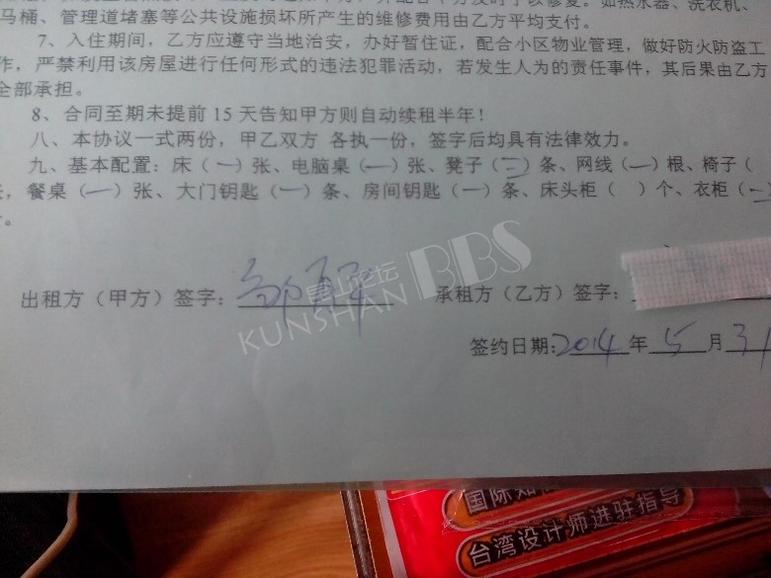 马桶、管理道堵塞等公共设施损坏所产生的维修费用由乙方平均支付。
7、入住期间，乙方应遵守当地治安，办好暂住证，配合小区物业管理，做好防火防盗工
作，严禁利用该房屋进行任何形式的违法犯罪活动，若发生人为的责任事件，其后果由乙方
全部承担。
8、合同至期未提前 15 天告知甲方则自动续租半年！
八、本协议一式两份，甲乙双方 各执一份，签字后均具有法律效力。
九、基本配置：床（一）张、电脑桌（一）张、凳子（二）条、网线（一）根、椅子（
餐桌（一）张、大门钥匙（一）条、房间钥匙（一）条、床头柜（ ）个、衣柜（
出租方（甲方）签字：
承租方（乙方）签字：
签约日期：2014 年 5 月 31
昆山论坛 BBS
KUNSHAN
国际
台湾设计师进驻指导